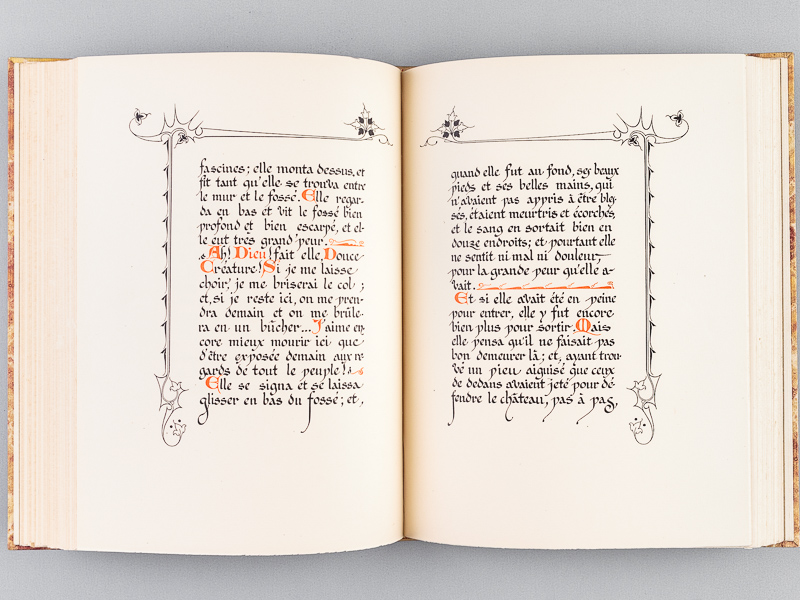 fascines; elle monta dessus, et
fit tant qu'elle se trouva entre
le mur et le fossé. Elle regar-
da en bas et vit le fossé bien
profond et bien escarpé, et el-
le eut très grand'peur.
Ah! Dieu! fait elle, Douce
Créature! Si je me laisse
choir, je me briserai le col;
et, si je reste ici, on me pren-
dra demain et on me brûle-
ra en un bûcher... J'aime en-
core mieux mourir ici que
d'être exposée demain aux re-
gards de tout le peuple!
Elle se signa et se laissa
glisser en bas du fossé; et,
quand elle fut au fond, ses beaux
pieds et ses belles mains, qui
n'avaient pas appris à être bles-
sés, étaient meurtris et écorchés,
et le sang en sortait bien en
douze endroits; et pourtant elle
ne sentit ni mal ni douleur,
pour la grande peur qu'elle a-
vait.
Et si elle avait été en peine
pour entrer, elle y fut encore
bien plus pour sortir. Mais
elle pensa qu'il ne faisait pas
bon demeurer là; et, ayant trou-
vé un pieu aiguisé que ceux
de dedans avaient jeté pour dé-
fendre le château, pas à pas,